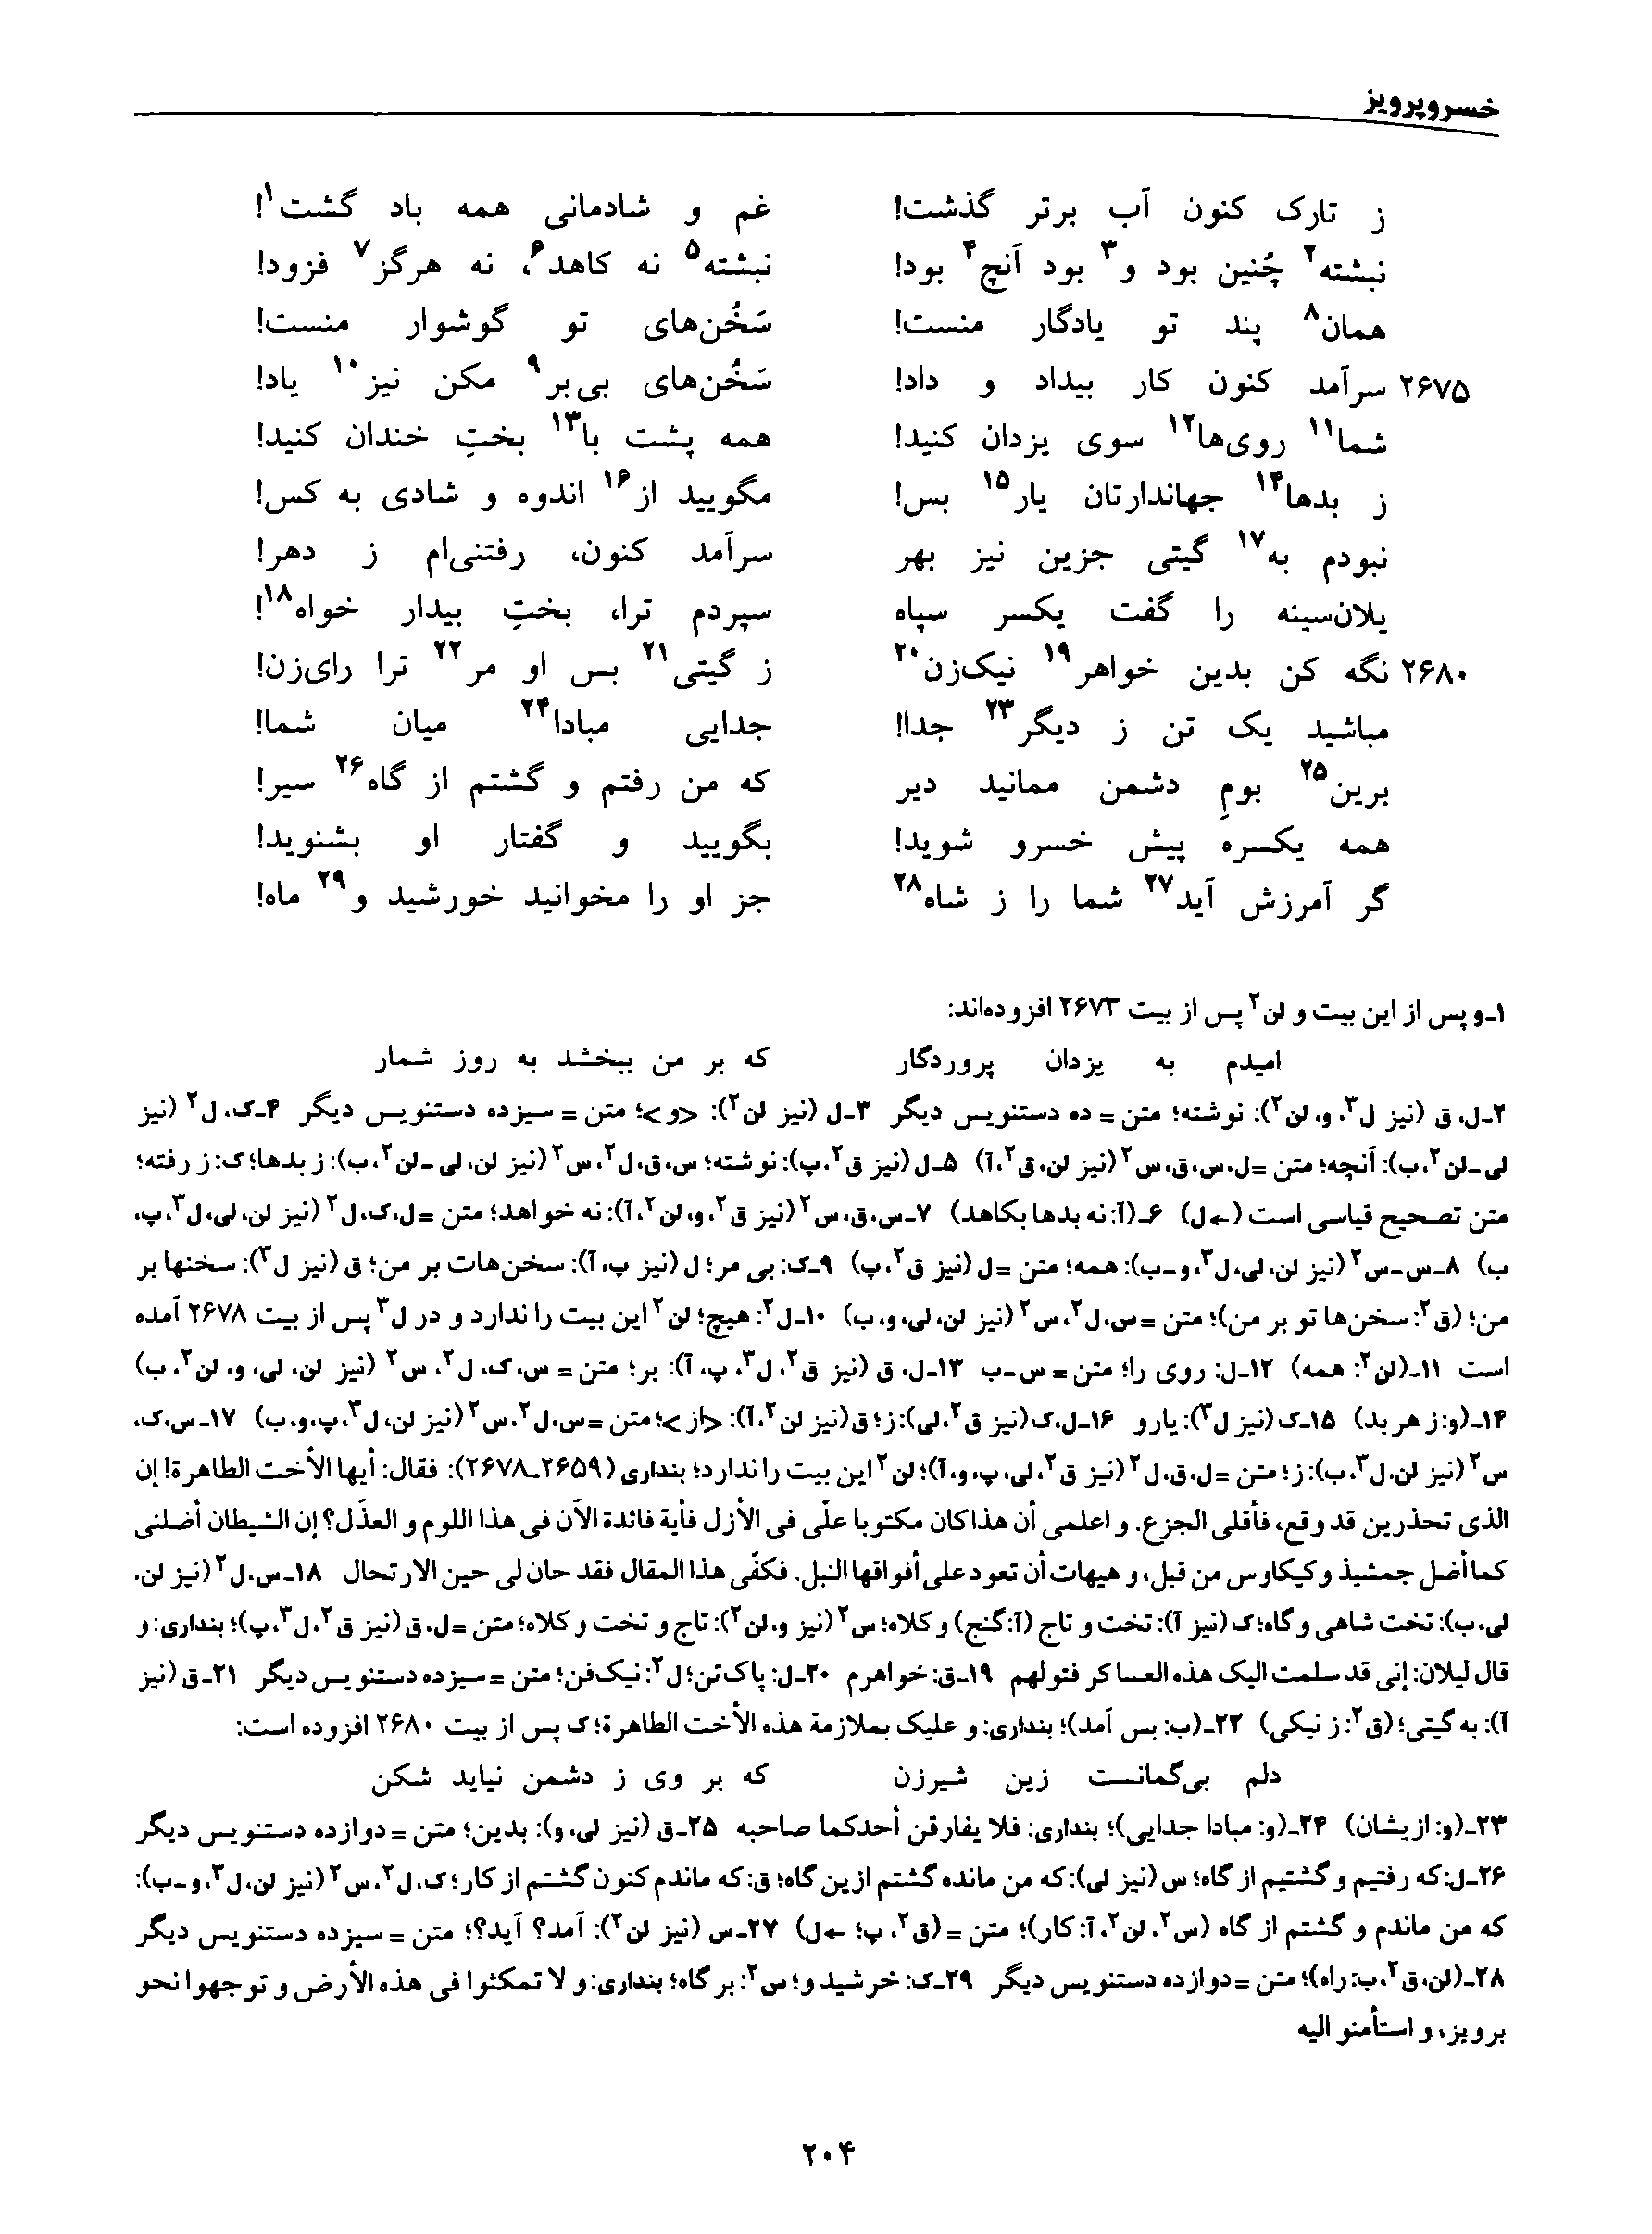 خسروپرویز
ز تارک کنون آب برتر گذشت! غم و شادمانی همه باد گشت۱!
نبشته۲ چُنین بود و۳ بود آنچ۴ بود! نبشته۵ نه کاهد۶، نه هرگز۷ فزود!
همان۸ پند تو یادگار منست! سَخُن‌های تو گوشوار منست!
۲۶۷۵ سرآمد کنون کار بیداد و داد! سَخُن‌های بی‌بر۹ مکن نیز۱۰ یاد!
شما۱۱ روی‌ها۱۲ سوی یزدان کنید! همه پشت با۱۳ بختِ خندان کنید!
ز بدها۱۴ جهاندارتان یار۱۵ بس! مگویید از۱۶ اندوه و شادی به کس!
نبودم به۱۷ گیتی جزین نیز بهر سرآمد کنون، رفتنی‌ام ز دهر!
یلان‌سینه را گفت یکسر سپاه سپردم ترا، بختِ بیدار خواه۱۸!
۲۶۸۰ نگه کن بدین خواهر۱۹ نیک‌زن۲۰ ز گیتی۲۱ بس او مر۲۲ ترا رای‌زن!
مباشید یک تن ز دیگر۲۳ جدا! جدایی مبادا۲۴ میان شما!
برین۲۵ بومِ دشمن ممانید دیر که من رفتم و گشتم از گاه۲۶ سیر!
همه یکسره پیش خسرو شوید! بگویید و گفتار او بشنوید!
گر آمرزش آید۲۷ شما را ز شاه۲۸ جز او را مخوانید خورشید و۲۹ ماه!
۱ـ و پس از این بیت و لن۲ پس از بیت ۲۶۷۳ افزوده‌اند:
امیدم به یزدان پروردگار که بر من ببخشد به روز شمار
۲ـ ل، ق (نیز ل۳، و، لن۲): نوشته؛ متن = ده دستنویس دیگر ۳ـ ل (نیز لن۲): <و>؛ متن = سیزده دستنویس دیگر ۴ـ ک، ل۲ (نیز
لی ـ لن۲، ب): آنچه؛ متن = ل، س، ق، س۲ (نیز لن، ق۲، آ) ۵ـ ل (نیز ق۲، پ): نوشته؛ س، ق، ل۲، س۲ (نیز لن، لی ـ لن۲، ب): ز بدها؛ ک: ز رفته؛
متن تصحیح قیاسی است (← ل) ۶ـ (آ: نه بدها بکاهد) ۷ـ س، ق، س۲ (نیز ق۲، و، لن۲، آ): نه خواهد؛ متن = ل، ک، ل۲ (نیز لن، لی، ل۳، پ،
ب) ۸ـ س ـ س۲ (نیز لن، لی، ل۳، و ـ ب): همه؛ متن = ل (نیز ق۲، پ) ۹ـ ک: بی مر؛ ل (نیز پ، آ): سخن‌هات بر من؛ ق (نیز ل۳): سخنها بر
من؛ (ق۲: سخن‌ها تو بر من)؛ متن = س، ل۲، س۲ (نیز لن، لی، و، ب) ۱۰ـ ل۲: هیچ؛ لن۲ این بیت را ندارد و در ل۳ پس از بیت ۲۶۷۸ آمده
است ۱۱ـ (لن۲: همه) ۱۲ـ ل: روی را؛ متن = س ـ ب ۱۳ـ ل، ق (نیز ق۲، ل۳، پ، آ): بر؛ متن = س، ک، ل۲، س۲ (نیز لن، لی، و، لن۲، ب)
۱۴ـ (و: ز هر بد) ۱۵ـ ک (نیز ل۳): یار و ۱۶ـ ل، ک (نیز ق۲، لی): ز؛ ق (نیز لن۲، آ): <از>؛ متن = س، ل۲، س۲ (نیز لن، ل۳، پ، و، ب) ۱۷ـ س، ک،
س۲ (نیز لن، ل۳، ب): ز؛ متن = ل، ق، ل۲ (نیز ق۲، لی، پ، و، آ)؛ لن۲ این بیت را ندارد؛ بنداری (۲۶۵۹ـ۲۶۷۸): فقال: أیها الأخت الطاهرة! إن
الذی تحذرین قد وقع، فأقلی الجزع. و اعلمی أن هذا کان مکتوبا علّی فی الأزل فأیة فائدة الآن فی هذا اللوم و العذّل؟ إن الشیطان أضلنی
کما أضل جمشیذ و کیکاوس من قبل، و هیهات أن تعود علی أفواقها النبل. فکفّی هذا المقال فقد حان لی حین الارتحال ۱۸ـ س، ل۲ (نیز لن،
لی، ب): تخت شاهی و گاه؛ ک (نیز آ): تخت و تاج (آ: گنج) و کلاه؛ س۲ (نیز و، لن۲): تاج و تخت و کلاه؛ متن = ل، ق (نیز ق۲، ل۳، پ)؛ بنداری: و
قال لیلان: إنی قد سلمت الیک هذه العساکر فتولهم ۱۹ـ ق: خواهرم ۲۰ـ ل: پاک‌تن؛ ل۲: نیک‌فن؛ متن = سیزده دستنویس دیگر ۲۱ـ ق (نیز
آ): به گیتی؛ (ق۲: ز نیکی) ۲۲ـ (ب: بس آمد)؛ بنداری: و علیک بملازمة هذه الأخت الطاهرة؛ ک پس از بیت ۲۶۸۰ افزوده است:
دلم بی‌گمانست زین شیرزن که بر وی ز دشمن نیاید شکن
۲۳ـ (و: ازیشان) ۲۴ـ (و: مبادا جدایی)؛ بنداری: فلا یفارقن أحدکما صاحبه ۲۵ـ ق (نیز لی، و): بدین؛ متن = دوازده دستنویس دیگر
۲۶ـ ل: که رفتیم و گشتیم از گاه؛ س (نیز لی): که من مانده گشتم ازین گاه؛ ق: که ماندم کنون گشتم از کار؛ ک، ل۲، س۲ (نیز لن، ل۳، و ـ ب):
که من ماندم و گشتم از گاه (س۲، لن۲، آ: کار)؛ متن = (ق۲، پ؛ ← ل) ۲۷ـ س (نیز لن۲): آمد؟ آید؟؛ متن = سیزده دستنویس دیگر
۲۸ـ (لن، ق۲، ب: راه)؛ متن = دوازده دستنویس دیگر ۲۹ـ ک: خرشید و؛ س۲: بر گاه؛ بنداری: و لا تمکثوا فی هذه الأرض و توجهوا نحو
برویز، و استأمنو الیه
۲۰۴